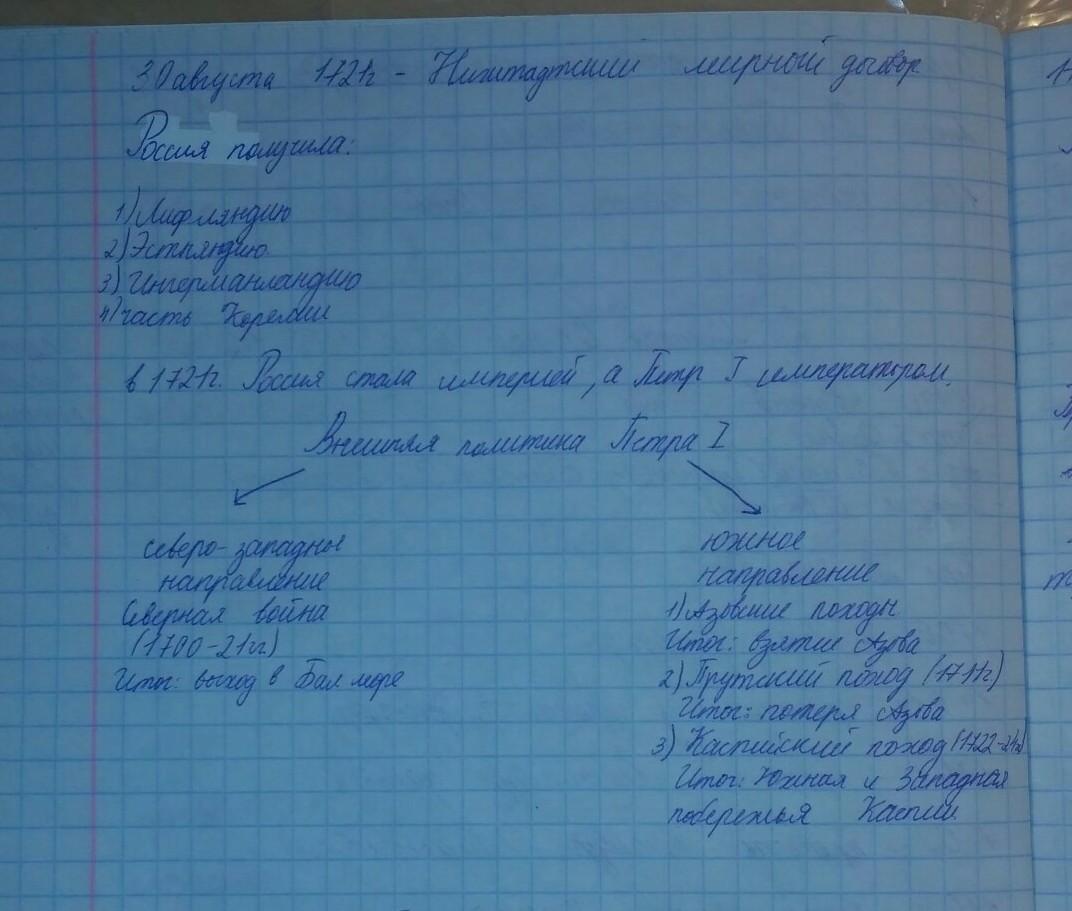 30 августа 1721г - Ништадтский мирный договор
Россия получила:
1) Лифляндию
2) Эстляндию.
3) Ингерманландию
4) часть Корелии
в 1721г. Россия стала империей, а Пётр I императором.
Внешняя политика Петра I
северо-западное
направление
Северная война
(1700-21гг)
Итог: выход в Бал море
южное
направление
1) Азовские походы
Итог: взятие Азова
2) Прутский поход (1711г)
Итог: потеря Азова
3) Каспийский поход (1722-
Итог: Южная и Западная
побережья Каспии.